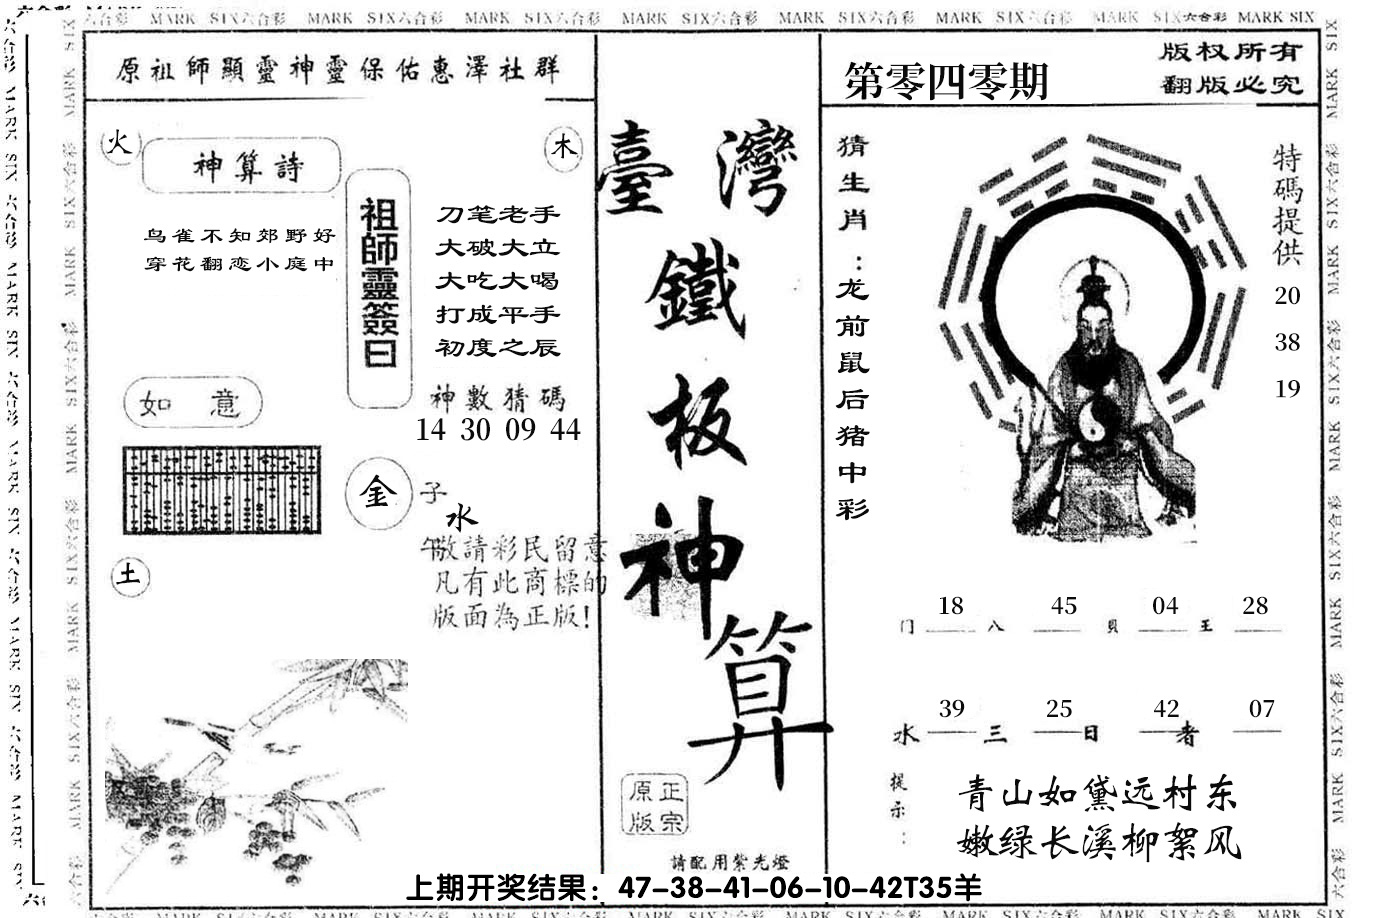 MARK SIX六合彩 MARK SIX六合彩 MARK SIX六合彩 MARK SIX六合彩 MARK SIX六合彩 MARK SIX六合彩 MARK SIX六合彩 MARK SIX
原祖師顯靈神靈保佑惠澤社群
火
神算詩
木
鸟雀不知郊野好
穿花翻恋小庭中
祖師靈簽曰
刀笔老手
大破大立
大吃大喝
打成平手
初度之辰
神數猜碼
14 30 09 44
如意
金
子
水
午
敬請彩民留意
凡有此商標的
版面為正版!
土
臺灣
鐵
板
神
算
正宗
原版
請配用紫光燈
第零四零期
版权所有
翻版必究
猜生肖:龙前鼠后猪中彩
特碼提供
20
38
19
门 18 八 45 貝 04 王 28
水 39 三 25 日 42 者 07
提示:
青山如黛远村东
嫩绿长溪柳絮风
上期开奖结果：47-38-41-06-10-42T35羊